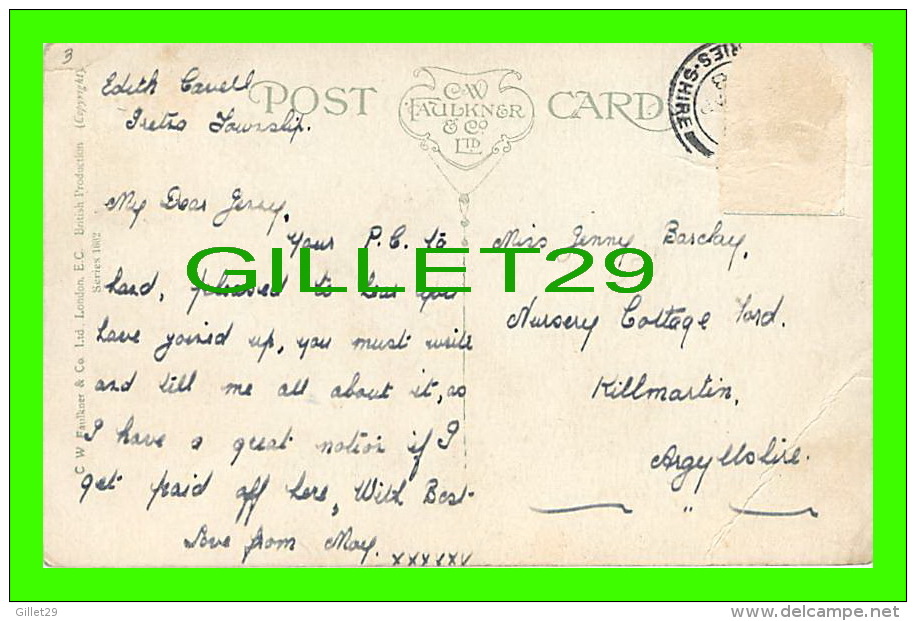 3
Edith Cavell
Township.
POST CARD
C.W
FAULKNER
& Co
LTD
RIES-SHIRE
C W Faulkner & Co Ltd, London, E.C. British Production (Copyright)
Series 1602
My Dear Jenny,
Your P.C. to
hand, pleased to hear you
have joined up, you must write
and tell me all about it, as
I have a great notion if I
get paid off here, With Best
Love from May.
xxxxxx
Miss Jenny Barclay,
Nursery Cottage Ford.
Killmartin,
Argyllshire.
"
GILLET29
Gillet29
http://www.delcampe.net